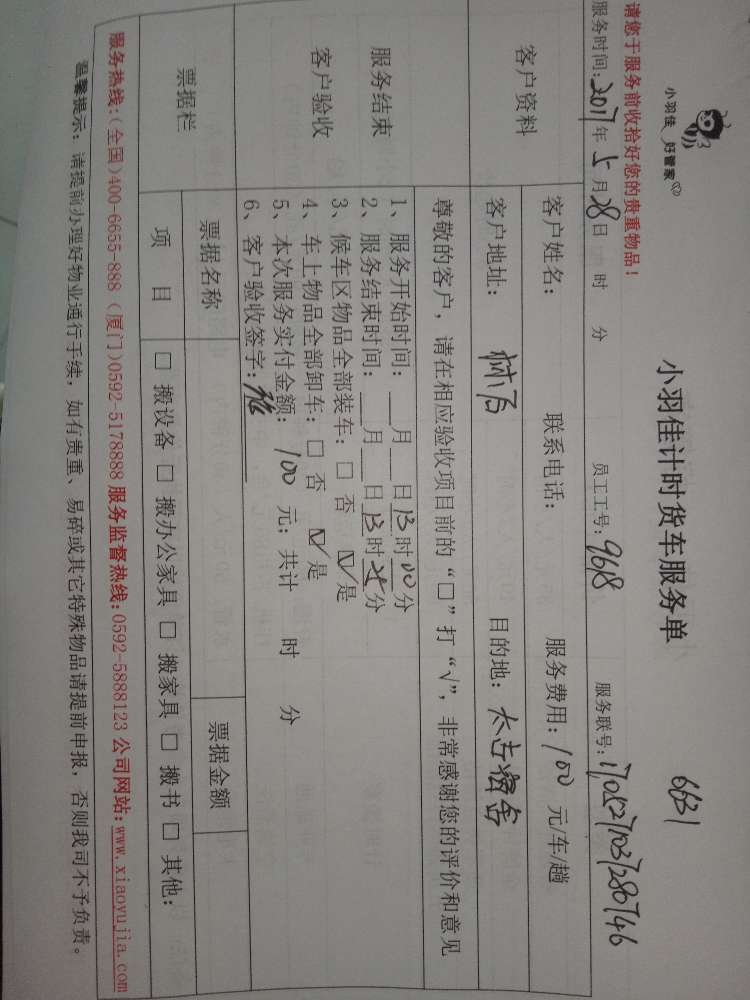 请您于服务前收拾好您的贵重物品!
小羽佳 好管家
小羽佳计时货车服务单
6631
服务时间:2017年5月28日 时 分 员工工号:9618 服务联号:170527103728746
客户资料
客户姓名: 联系电话: 服务费用:100元/车/趟
客户地址: 目的地:
服务结束
客户验收
尊敬的客户,请在相应验收项目前的“□”打“√”,非常感谢您的评价和意见
1、服务开始时间:___月___日13时00分
2、服务结束时间:___月___日13时25分
3、候车区物品全部装车:□ 否 ☑ 是
4、车上物品全部卸车:□ 否 ☑ 是
5、本次服务实付金额:100元;共计 时 分
6、客户验收签字:
票据栏
票据名称 票据金额
项 目 □ 搬设备 □ 搬办公家具 □ 搬家具 □ 搬书 □ 其他:
服务热线:(全国)400-6655-888 (厦门)0592-5178888 服务监督热线:0592-5888123 公司网站:www.xiaoyujia.com
温馨提示:请提前办理好物业通行手续,如有贵重、易碎或其它特殊物品请提前申报,否则我司不予负责。